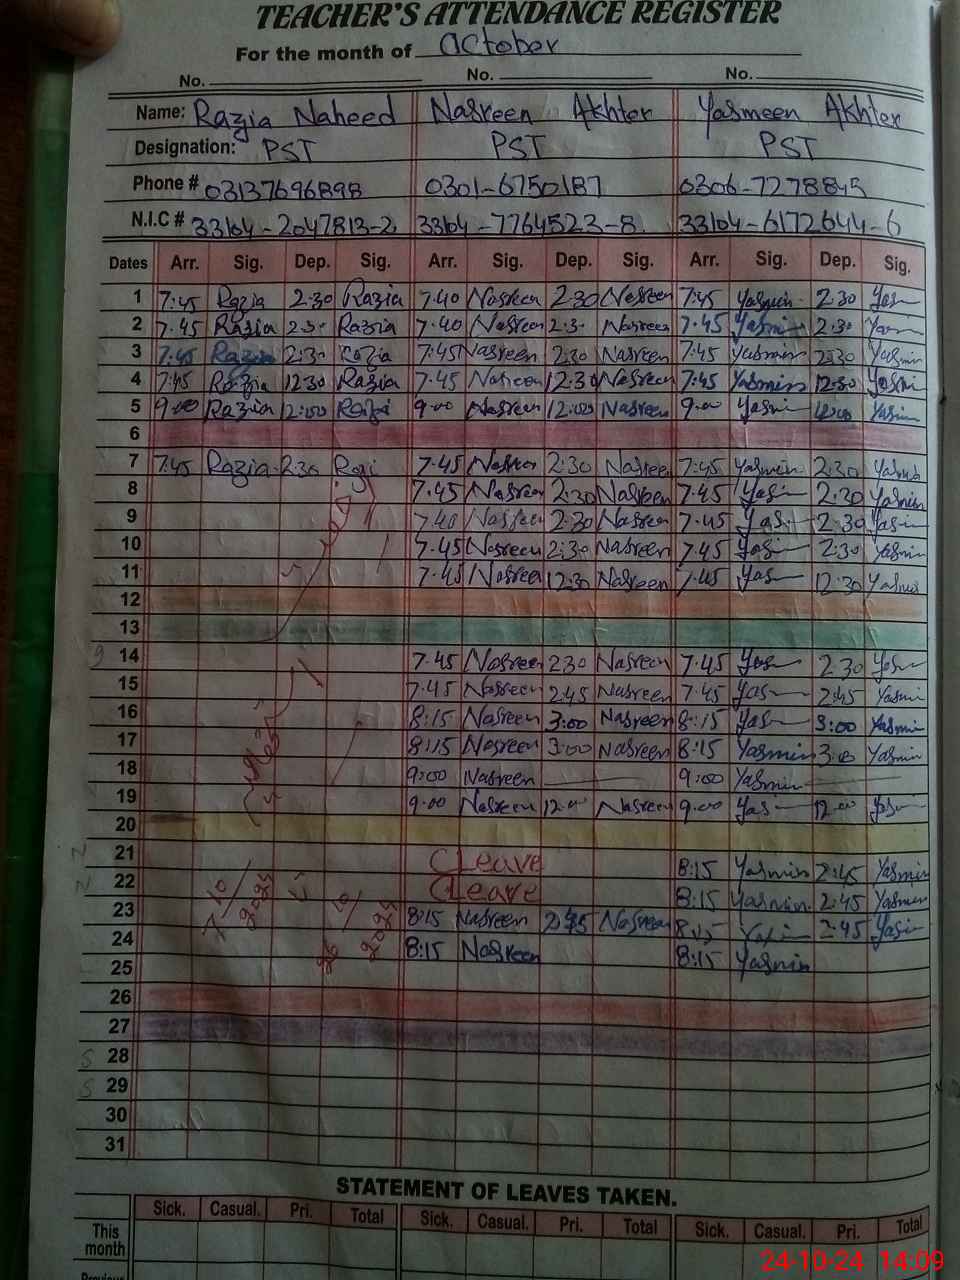 TEACHER'S ATTENDANCE REGISTER
For the month of October
No. No. No.
Name: Razia Naheed Nasreen Akhter Yasmeen Akhter
Designation: PST PST PST
Phone # 03137696898 0301-6750187 0306-7278845
N.I.C # 33104-2047813-2 33104-7764523-8 33104-6172644-6
Dates Arr. Sig. Dep. Sig. Arr. Sig. Dep. Sig. Arr. Sig. Dep. Sig.
1 7:45 Razia 2:30 Razia 7.40 Nasreen 2:30 Nasreen 7:45 Yasmin 2:30
2 7.45 Razia 2:30 Razia 7.40 Nasreen 2:30 Nasreen 7.45 Yasmin 2:30
3 7:45 Razia 2:30 Razia 7:45 Nasreen 2:30 Nasreen 7:45 Yasmin 2:30 Yasmin
4 7:45 Razia 12:30 Razia 7.45 Nasreen 12:30 Nasreen 7:45 Yasmin 12:30 Yasmin
5 9:00 Razia 12:00 Razia 9:00 Nasreen 12:00 Nasreen 9:00 Yasmin 12:00 Yasmin
6
7 7:45 Razia 2:30 Razia 7.45 Nasreen 2:30 Nasreen 7:45 Yasmin 2:30 Yasmin
8 7.45 Nasreen 2:30 Nasreen 7.45 2:30 Yasmin
9 7.40 Nasreen 2:30 Nasreen 7.45 2:30
10 7.45 Nasreen 2:30 Nasreen 7.45 2:30 Yasmin
11 7.45 Nasreen 12:30 Nasreen 7.45 12:30 Yasmin
12
13
14 7.45 Nasreen 2:30 Nasreen 7.45 2:30
15 7.45 Nasreen 2:45 Nasreen 7.45 2:45 Yasmin
16 8:15 Nasreen 3:00 Nasreen 8:15 3:00 Yasmin
17 8:15 Nasreen 3:00 Nasreen 8:15 Yasmin 3:00 Yasmin
18 9:00 Nasreen 9:00 Yasmin
19 9:00 Nasreen 12:00 Nasreen 9:00 12:00
20
21 C Leave 8:15 Yasmin 2:45 Yasmin
22 C Leave 8:15 Yasmin 2:45 Yasmin
23 8:15 Nasreen 2:45 Nasreen 8:15 2:45
24 8:15 Nasreen 8:15 Yasmin
25
26
27
28
29
30
31
STATEMENT OF LEAVES TAKEN.
Sick. Casual. Pri. Total Sick. Casual. Pri. Total Sick. Casual. Pri. Total
This month
Previous
24-10-24 14:09